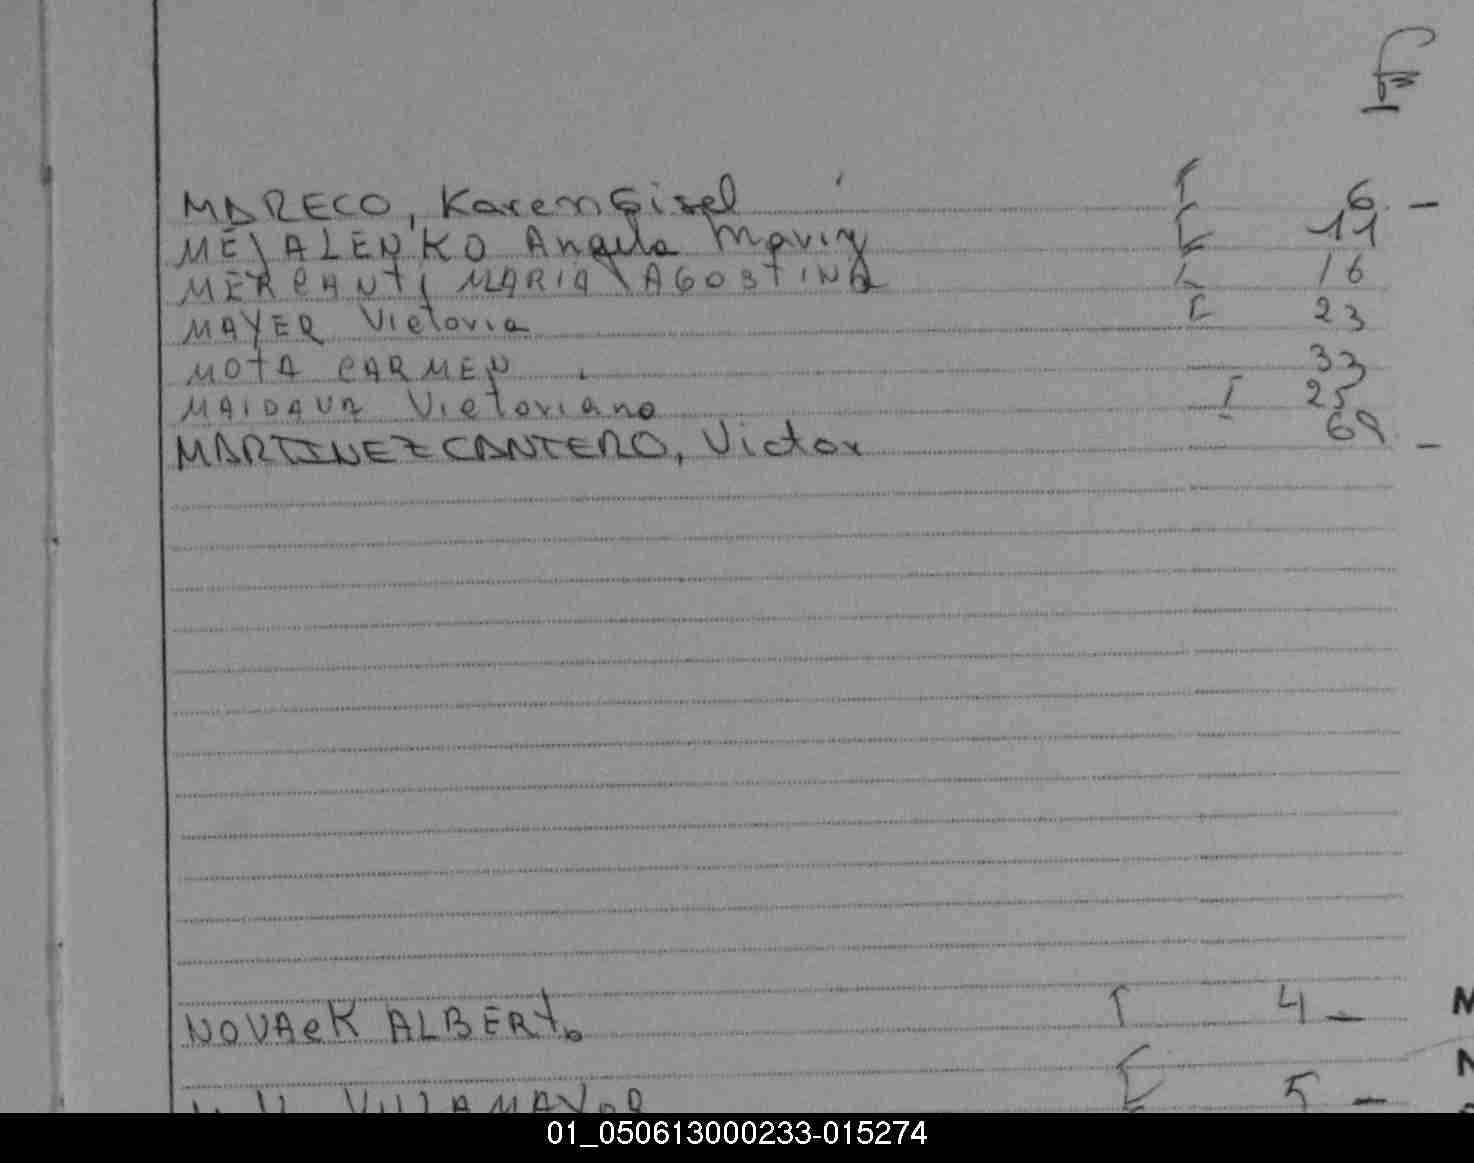 F
MARECO, Karen Gisel E 6. -
MEJALENKO Angela Maviz E 11
MERCANTI MARIA AGOSTINA E 16
MAYER Victoria E 23
MOTA CARMEN 33
MAIDAUA Victoriano I 25
MARTINEZ CANTERO, Victor 69. -
NOVACK ALBERTO I 4 -
M
VILLAMAYOR E 5 -
01_050613000233-015274